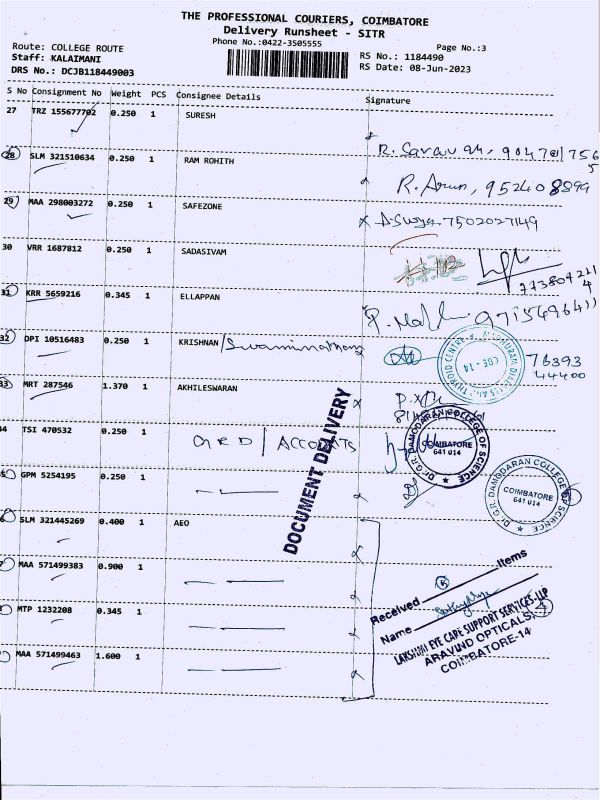 THE PROFESSIONAL COURIERS, COIMBATORE
Delivery Runsheet - SITR
Phone No.:0422-3505555
Page No.:3
Route: COLLEGE ROUTE
Staff: KALAIMANI
DRS No.: DCJB118449003
RS No.: 1184490
RS Date: 08-Jun-2023
S No Consignment No Weight PCS Consignee Details Signature
27 TRZ 155677702 0.250 1 SURESH
28 SLM 321510634 0.250 1 RAM ROHITH R. Arun, 952408899
29 MAA 298003272 0.250 1 SAFEZONE 7502027149
30 VRR 1687812 0.250 1 SADASIVAM
31 KRR 5659216 0.345 1 ELLAPPAN
32 DPI 10516483 0.250 1 KRISHNAN 76393 44400
33 MRT 287546 1.370 1 AKHILESWARAN
34 TSI 470532 0.250 1 GRD / ACCOUNTS
GPM 5254195 0.250 1
SLM 321445269 0.400 1 AEO
MAA 571499383 0.900 1
MTP 1232208 0.345 1
MAA 571499463 1.600 1
DOCUMENT DELIVERY
Dr.G.R. DAMODARAN COLLEGE OF SCIENCE
COIMBATORE
641 014
Dr.G.R. DAMODARAN COLLEGE OF SCIENCE
COIMBATORE
641 014
CBE - 14
Received 5 Items
Name
LAKSHMI EYE CARE SUPPORT SERVICES-LLP
ARAVIND OPTICALS,
COIMBATORE-14